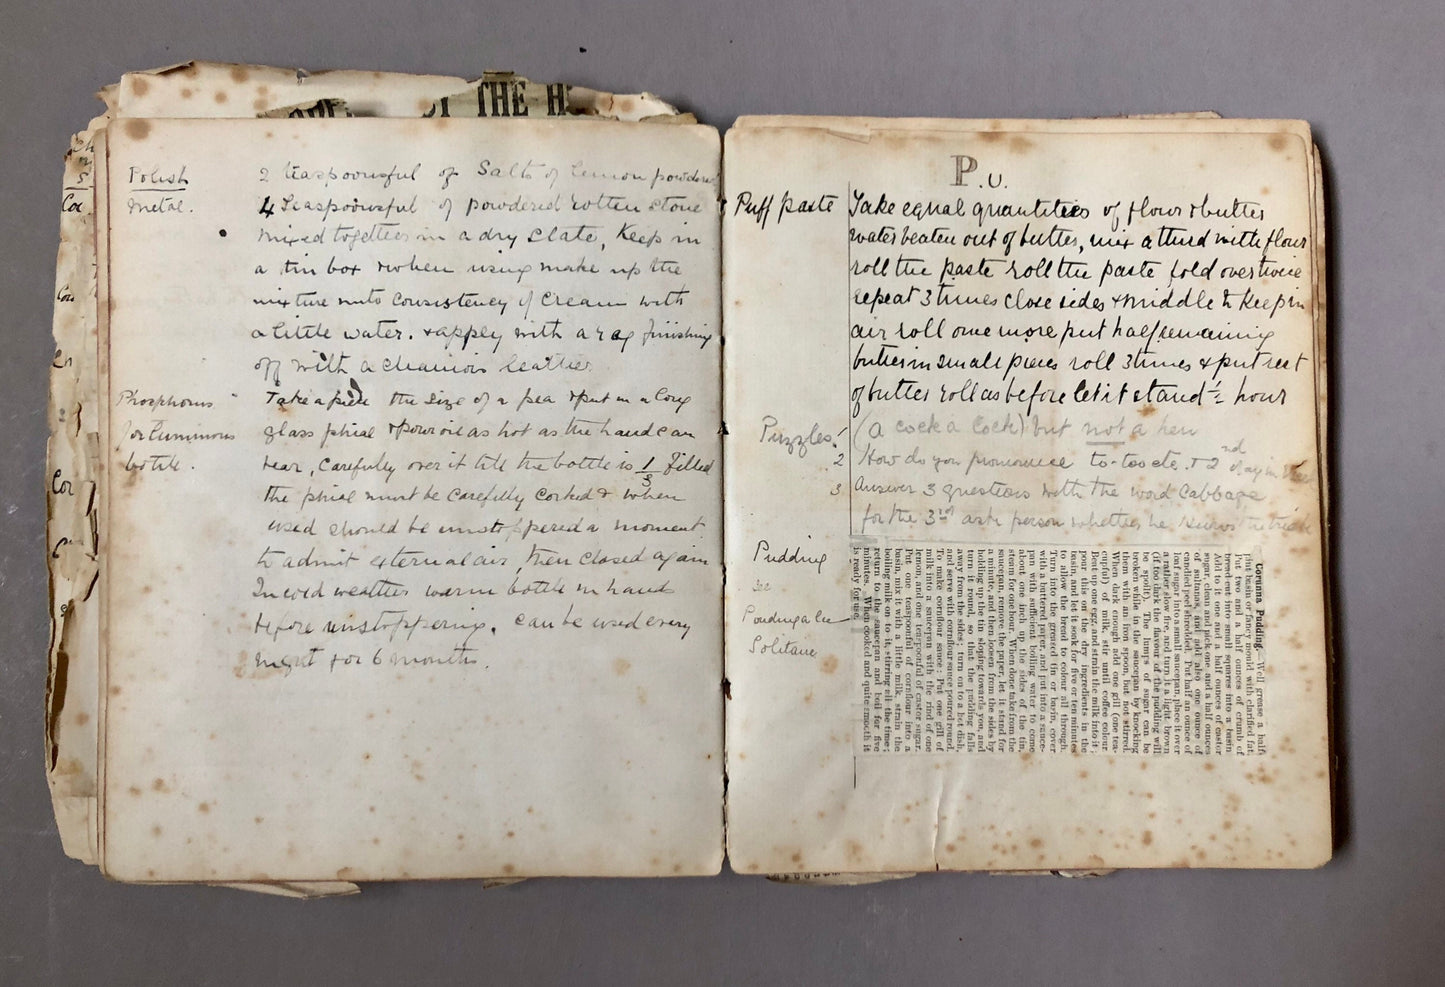 THE H
Polish 2 teaspoonsful of Salts of lemon powdered
Metal. 4 Teaspoonsful of powdered rotten stone
mixed together in a dry state, Keep in
a tin box & when using make up the
mixture into consistency of Cream with
a little water. & apply with a rag finishing
off with a chamois leather
Phosphorus Take a piece the size of a pea & put in a long
for luminous glass phial & pour oil as hot as the hand can
bottle. bear, carefully over it till the bottle is 1/3 filled
the phial must be carefully corked & when
used should be unstoppered a moment
to admit external air, then closed again
In cold weather warm bottle in hands
before unstoppering. can be used every
night for 6 months.
P.U.
Puff paste Take equal quantities of flour & butter
water beaten out of butter, mix a third with flour
roll the paste roll the paste fold over twice
repeat 3 times close sides & middle to keep in
air roll once more put half remaining
butter in small pieces roll 3 times & put rest
of butter roll as before let it stand ½ hour
Puzzles! (a cock a cock) but not a hen
2 How do you pronounce to-too etc. & 2nd day in
3 Answer 3 questions with the word Cabbage
for the 3rd ask person whether he knows the trick
Pudding
see
Solitaire
Corunna Pudding.—Well grease a half-
pint basin or fancy mould with clarified fat.
Put two and a half ounces of crumb of
bread cut into small squares into a basin
Add to it one and a half ounces of castor
sugar, clean and pick one and a half ounces
of sultanas, and add also one ounce of
candied peel shredded. Put half an ounce of
loaf sugar into a small saucepan, place it over
a rather slow fire, and turn it a light brown
(if too dark the flavour of the pudding will
be spoilt). The lumps of sugar can be
broken while in the saucepan by knocking
them with an iron spoon, but not stirred.
When dark enough add one gill (one tea-
cupful) of milk, stir until coffee colour
Beat up one egg, and strain the milk into it;
pour this on the dry ingredients in the
basin, and let it soak for five or ten minutes
to allow the bread to colour all through.
Turn into the greased tin or basin, cover
with a buttered paper, and put into a sauce-
pan with sufficient boiling water to come
about one inch up the sides of the tin,
steam for one hour. When done take from the
saucepan, remove the paper, let it stand for
a minute, and then loosen from the sides by
holding up the tin sloping towards you, and
turn it round, so that the pudding falls
away from the sides; turn on to a hot dish,
and serve with cornflour sauce poured round.
To make cornflour sauce: Put one gill of
milk into a saucepan with the rind of one
lemon, and one teaspoonful of castor sugar.
Put one teaspoonful of cornflour into a
basin, mix it with a little milk, strain the
boiling milk on to it, stirring all the time;
return to the saucepan and boil for five
minutes. When cooked and quite smooth it
is ready for use.